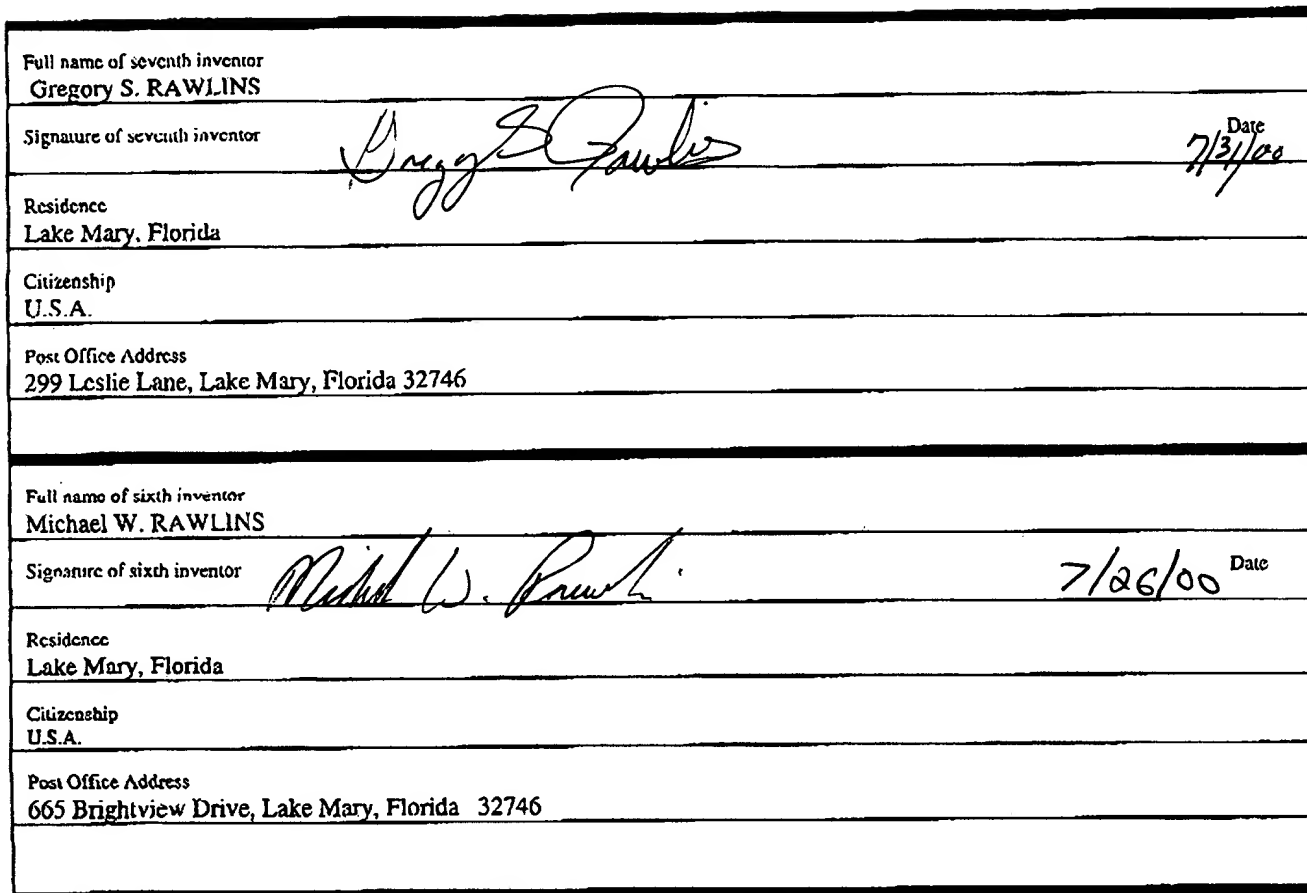 Full name of seventh inventor
Gregory S. RAWLINS
Signature of seventh inventor Gregory S Rawlins Date
7/31/00
Residence
Lake Mary, Florida
Citizenship
U.S.A.
Post Office Address
299 Leslie Lane, Lake Mary, Florida 32746
Full name of sixth inventor
Michael W. RAWLINS
Signature of sixth inventor Michael W. Rawlins 7/26/00 Date
Residence
Lake Mary, Florida
Citizenship
U.S.A.
Post Office Address
665 Brightview Drive, Lake Mary, Florida 32746